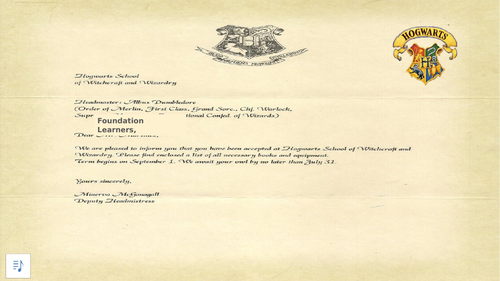 HOGWARTS
Hogwarts School
of Witchcraft and Wizardry
Headmaster: Albus Dumbledore
(Order of Merlin, First Class, Grand Sorc., Chf. Warlock,
Supr tional Confed. of Wizards)
Foundation
Learners,
Dear
We are pleased to inform you that you have been accepted at Hogwarts School of Witchcraft and
Wizardry. Please find enclosed a list of all necessary books and equipment.
Term begins on September 1. We await your owl by no later than July 31.
Yours sincerely,
Minerva McGonagall
Deputy Headmistress